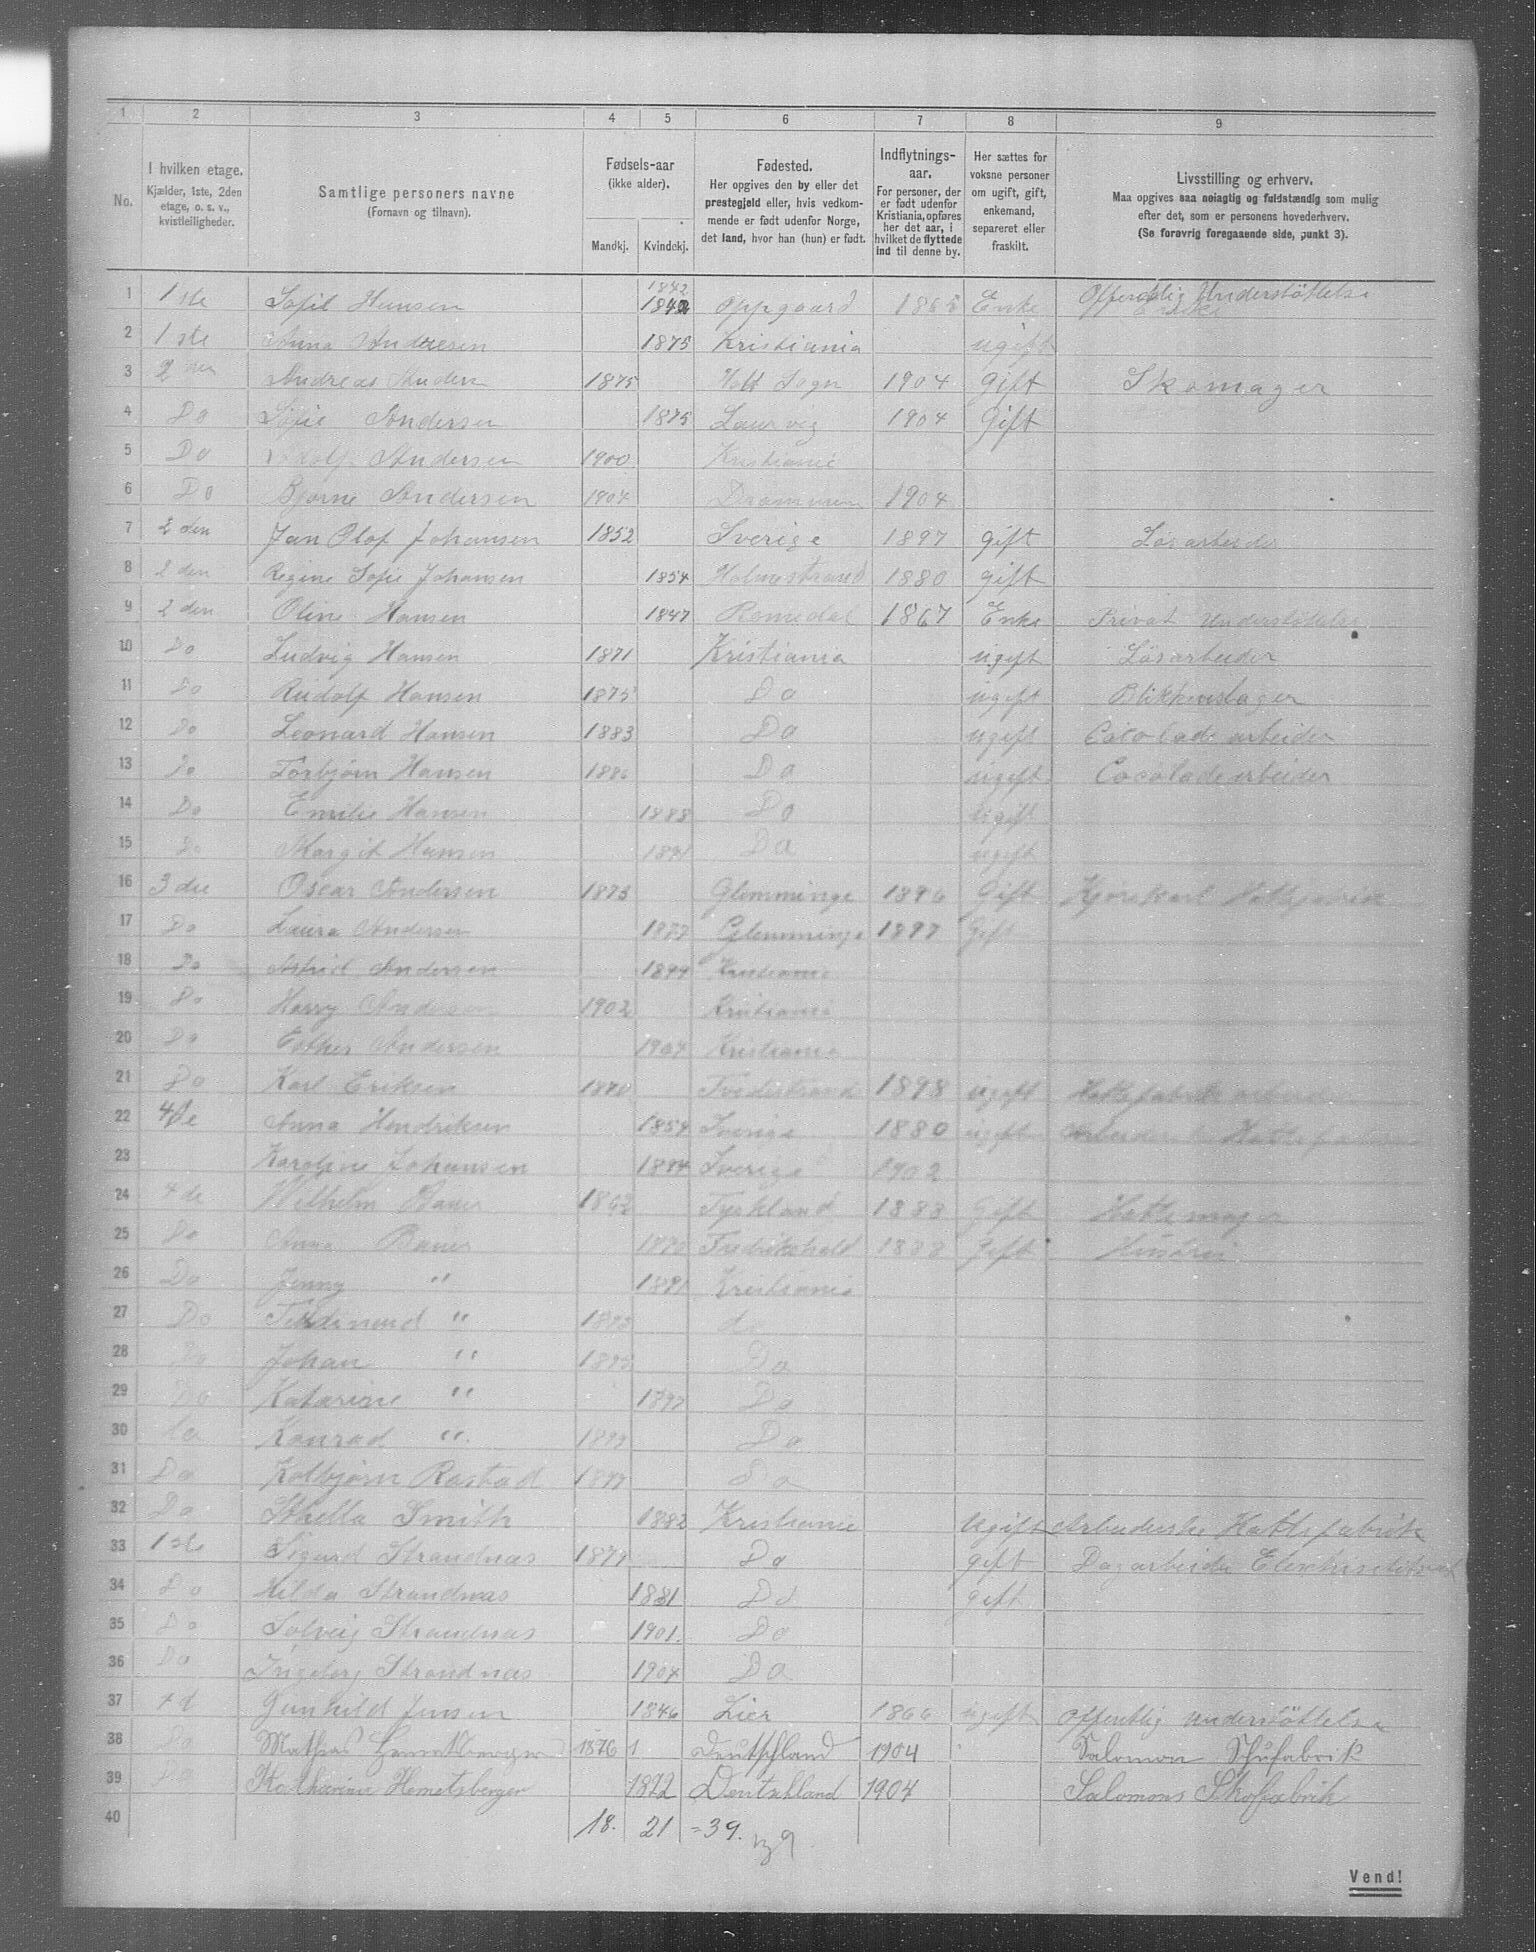 1 2 3 4 5 6 7 8 9
No.
I hvilken etage.
Kjælder, 1ste, 2den
etage, o. s. v.,
kvistleiligheder.
Samtlige personers navne
(Fornavn og tilnavn).
Fødsels-aar
(ikke alder).
Mandkj. Kvindekj.
Fødested.
Her opgives den by eller det
prestegjeld eller, hvis vedkom-
mende er født udenfor Norge,
det land, hvor han (hun) er født.
Indflytnings-
aar.
For personer, der
er født udenfor
Kristiania, opføres
her det aar, i
hvilket de flyttede
ind til denne by.
Her sættes for
voksne personer
om ugift, gift,
enkemand,
separeret eller
fraskilt.
Livsstilling og erhverv.
Maa opgives saa nøiagtig og fuldstændig som mulig
efter det, som er personens hovederhverv.
(Se forøvrig foregaaende side, punkt 3).
1842
1 1ste Sofie Hansen 1842 Oppgaard 1865 Enke Offendlig Understöttelse
2 1ste Anna Andresen 1875 Kristiania ugift
3 2 Andreas Anders 1875 Holt Sogn 1904 Gift Skomager
4 Do Sofie Andersen 1875 Laurvig 1904 Gift
5 Do Andersen 1900 Kristiania
6 Do Bjarne Andersen 1904 Drammen 1904
7 2den Jan Olof Johansen 1852 Sverige 1897 gift Løsarbeider
8 2den Regine Sofie Johansen 1854 Holmestrand 1880 gift
9 2den Oline Hansen 1847 Romedal 1867 Enke Privat Understöttelse
10 Do Ludvig Hansen 1871 Kristiania ugift Løsarbeider
11 Do Rudolf Hansen 1875 Do ugift Blikkenslager
12 Do Leonard Hansen 1883 Do ugift Cocolade arbeider
13 Do Torbjørn Hansen 1886 Do ugift Cocolade arbeider
14 Do Emilie Hansen 1888 Do ugift
15 Do Margit Hansen 1891 Do ugift
16 3die Oscar Andersen 1873 Glemminge 1896 Gift Hattefabrik
17 Do Laura Andersen 1877 Glemminge 1897 Gift
18 Do Astrid Andersen 1899 Kristiania
19 Do Harry Andersen 1902 Kristiania
20 Do Esther Andersen 1904 Kristiania
21 Do Karl Eriksen Tvedestrand 1898 ugift Hattefabrik
22 4de Anna Hendriksen 1854 Sverige 1880 ugift
23 Karoline Johansen 1884 Sverige 1902
24 4de Wilhelm Bauer 1862 Tyskland 1883 Gift Hattemager
25 Do Anna Bauer 1870 Fredrikshald 1888 Gift Hüstru
26 Do Jenny " 1891 Kristiania
27 Do Ferdinand " 1893 do
28 Do Johan " 1895 Do
29 Do Katarine " 1897 Do
30 Konrad " 1899 Do
31 Do Kolbjørn Rastad 1899 Do
32 Do Smith 1882 Kristiania Ugift Arbeiderske Hattefabrik
33 1ste Sigurd Strandnæs 1877 Do gift Dagarbeider
34 Do Hilda Strandnæs 1881 Do gift
35 Do Solveig Strandnæs 1901. Do
36 Do Ingeborg Strandnæs 1904 Do
37 4d Gunhild Jensen 1846 Lier 1866 ugift Offentlig Understöttelse
38 Do Mathias 1876 1 Deutschland 1904 Salomon Schufabrik
39 Do Katharina Hemetsberger 1872 Deutschland 1904 Salomons Skofabrik
40 18. 21 = 39. 39.
Vend!